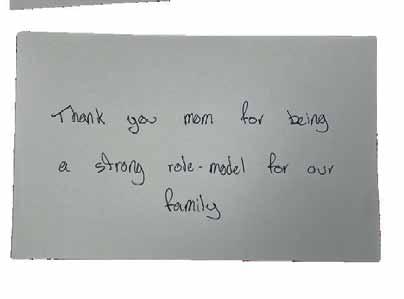 Thank you mom for being
a strong role-model for our
family